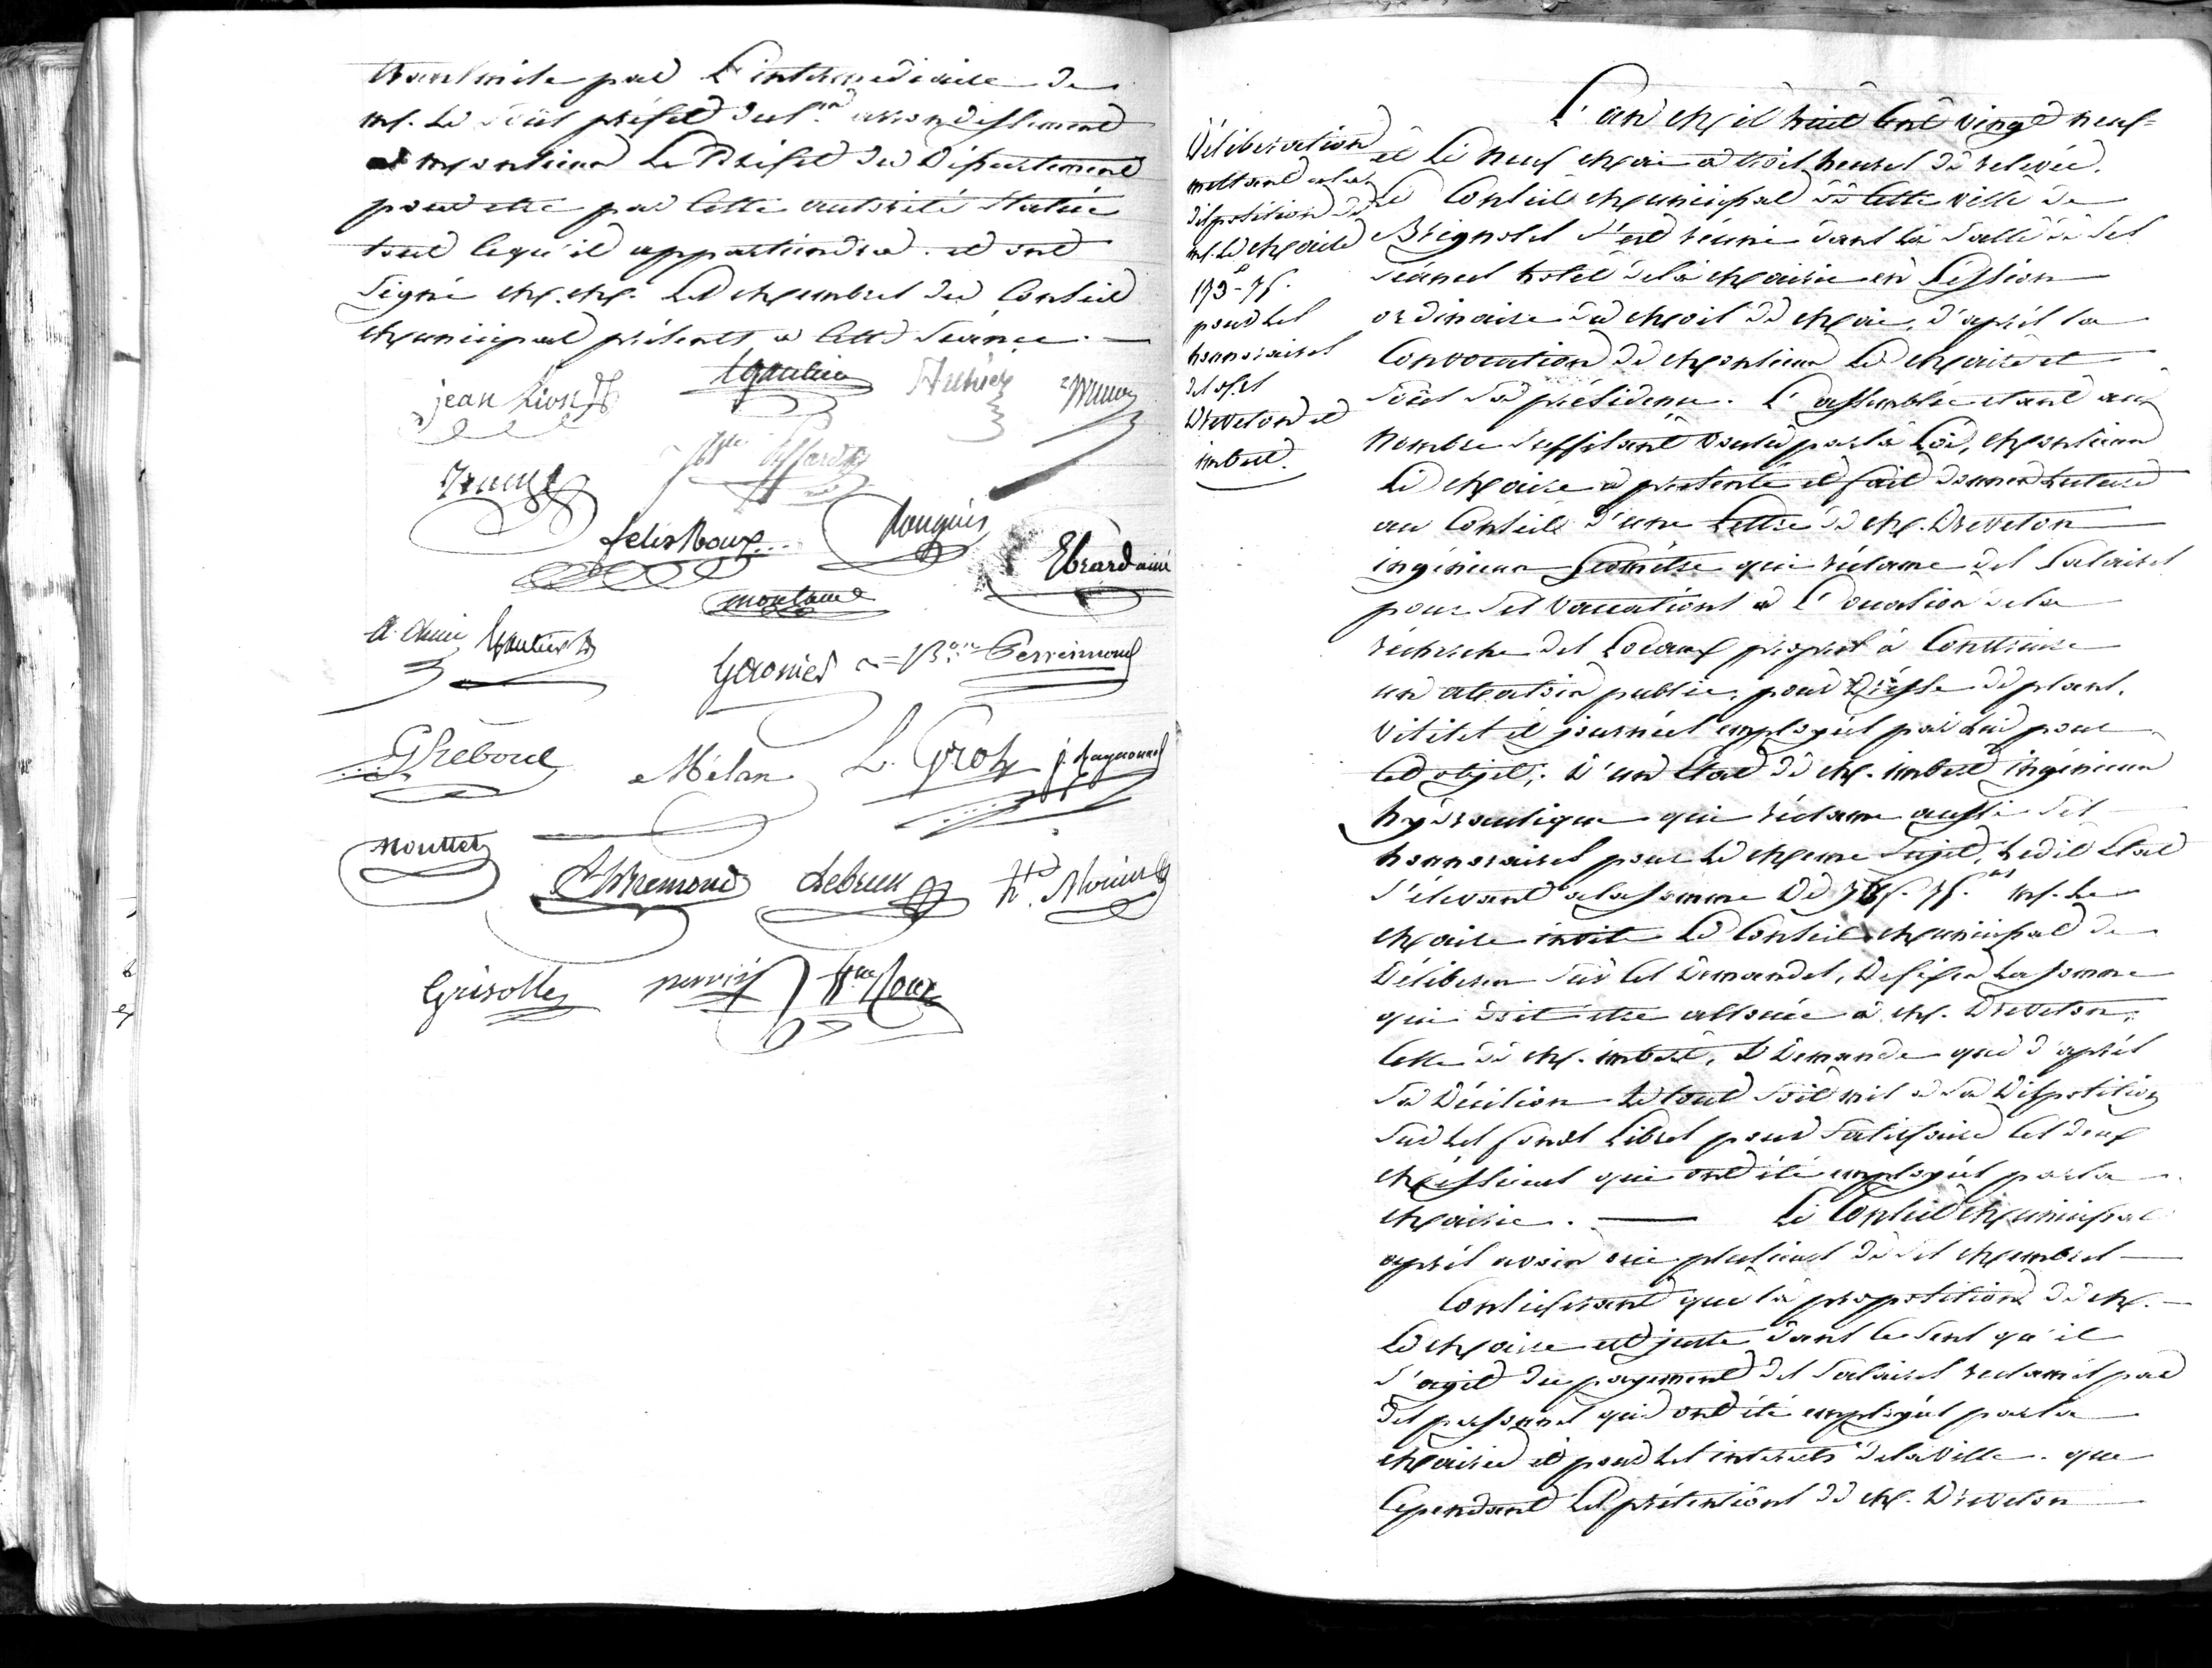 transmise par l'intermediaire de
mr. le sous préfet du 1er arrondissement
a monsieur le Préfet du Département
pour etre par cette autorité statué
tout cequ'il appartiendra. et ont
signé M.M. les Membres du Conseil
Municipal présents a cette séance. —
jean Lion
Felix Roux
Ebrard ainé
Garnier Perrimond
G Reboul Mélan L. Gros j. Raynouard
Mouttet Bremond Lebrun
Grisolle Roux
Délibération
mettant a la
disposition de
mr. le Maire
173f-75.
pour les
honnoraires
de ms.rs
Dreveton et
imbert.
L'an Mil huit Cent vingt neuf
et le neuf Mai a trois heures de relevée.
le Conseil Municipal de cette ville de
Brignoles s'est réuni dans la salle de ses
séances hotel dela Mairie en Session
ordinaire du Mois de Mai, d'après la
Convocation de Monsieur le Maire et
sous sa présidence. L'assemblée etant au
nombre suffisant voulu par la Loi, Monsieur
le Maire a présenté et fait donner lecture
au Conseil d'une Lettre de M. Dreveton
ingénieur Géomètre qui réclame des Salaires
pour ses vacations a l'occasion dela
récherche des Locaux propres à Construire
un abatoir public, pour Dresse de plans,
visites et journées employées par lui pour
cet objet; D'un Etat de M. imbert ingénieur
hydraulique qui réclame aussi des
honnoraires pour le Meme Sujet, Ledit Etat
s'élevant alasomme De 75. mr. le
Maire invite le Conseil Municipal de
Délibérer sur ces Demandes, De fixer la somme
qui doit etre allouée à M. Dreveton,
Celle de M. imbert, & Demande que d'après
sa Décision le tout soit mis a sa Disposition
sur les fonds Libres pour satisfaire ces deux
Messieurs qui ont été employés parla
Mairie. — Le Conseil Municipal
après avoir oui plusieurs de ses Membres
Considerant que la proposition de M.
le Maire est juste dans le sens qu'il
s'agit du payement des Salaires reclamés par
des personnes qui ont été employés parla
Mairie et pour les interets dela ville. que
Cependant les prétentions de M. Dreveton